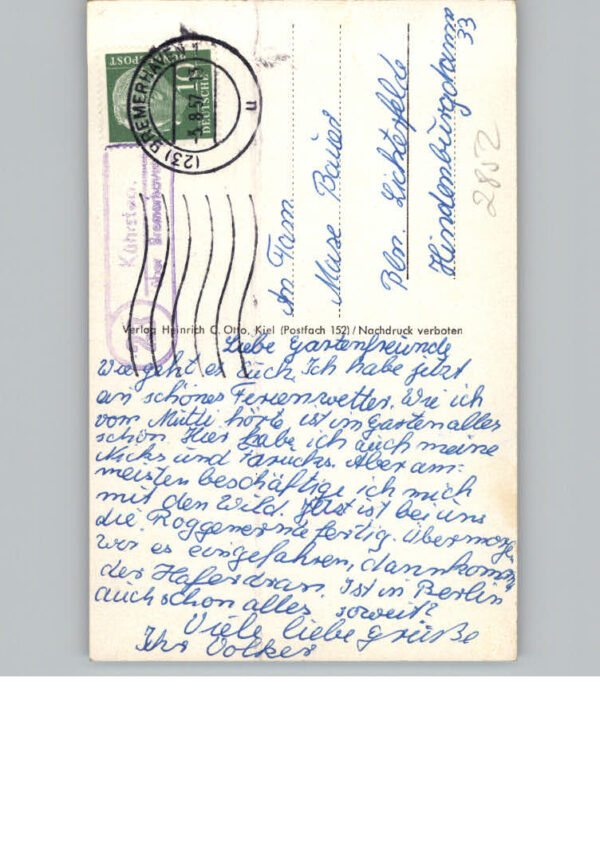 DEUTSCHE
10
POST
(23) BREMERHAVEN
-5.8.57
n
über Bremerhaven
An Fam.
Bauer
Bln. Lichterfelde
Hindenburgdamm
33
2852
Verlag Heinrich C. Otto, Kiel (Postfach 152) / Nachdruck verboten
Liebe Gartenfreunde
Wie geht es Euch. Ich habe jetzt
ein schönes Ferienwetter. Wie ich
vom Mutti hörte ist im Garten alles
schön. Hier habe ich auch meine
und Aber am
meisten beschäftige ich mich
mit den Wild. Jetzt ist bei uns
die Roggenernte fertig. Übermorgen
es eingefahren, dann kommt
der Hafer dran. Ist in Berlin
auch schon alles soweit?
Viele liebe Grüße
Ihr Volker